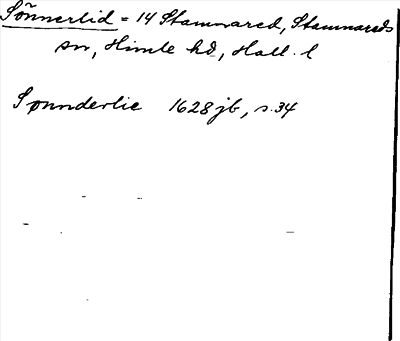 Sönnerlid = 14 Stamnared, Stamnareds
sn, Himle hd, Hall. l
Sønnderlie 1628 jb, s. 34